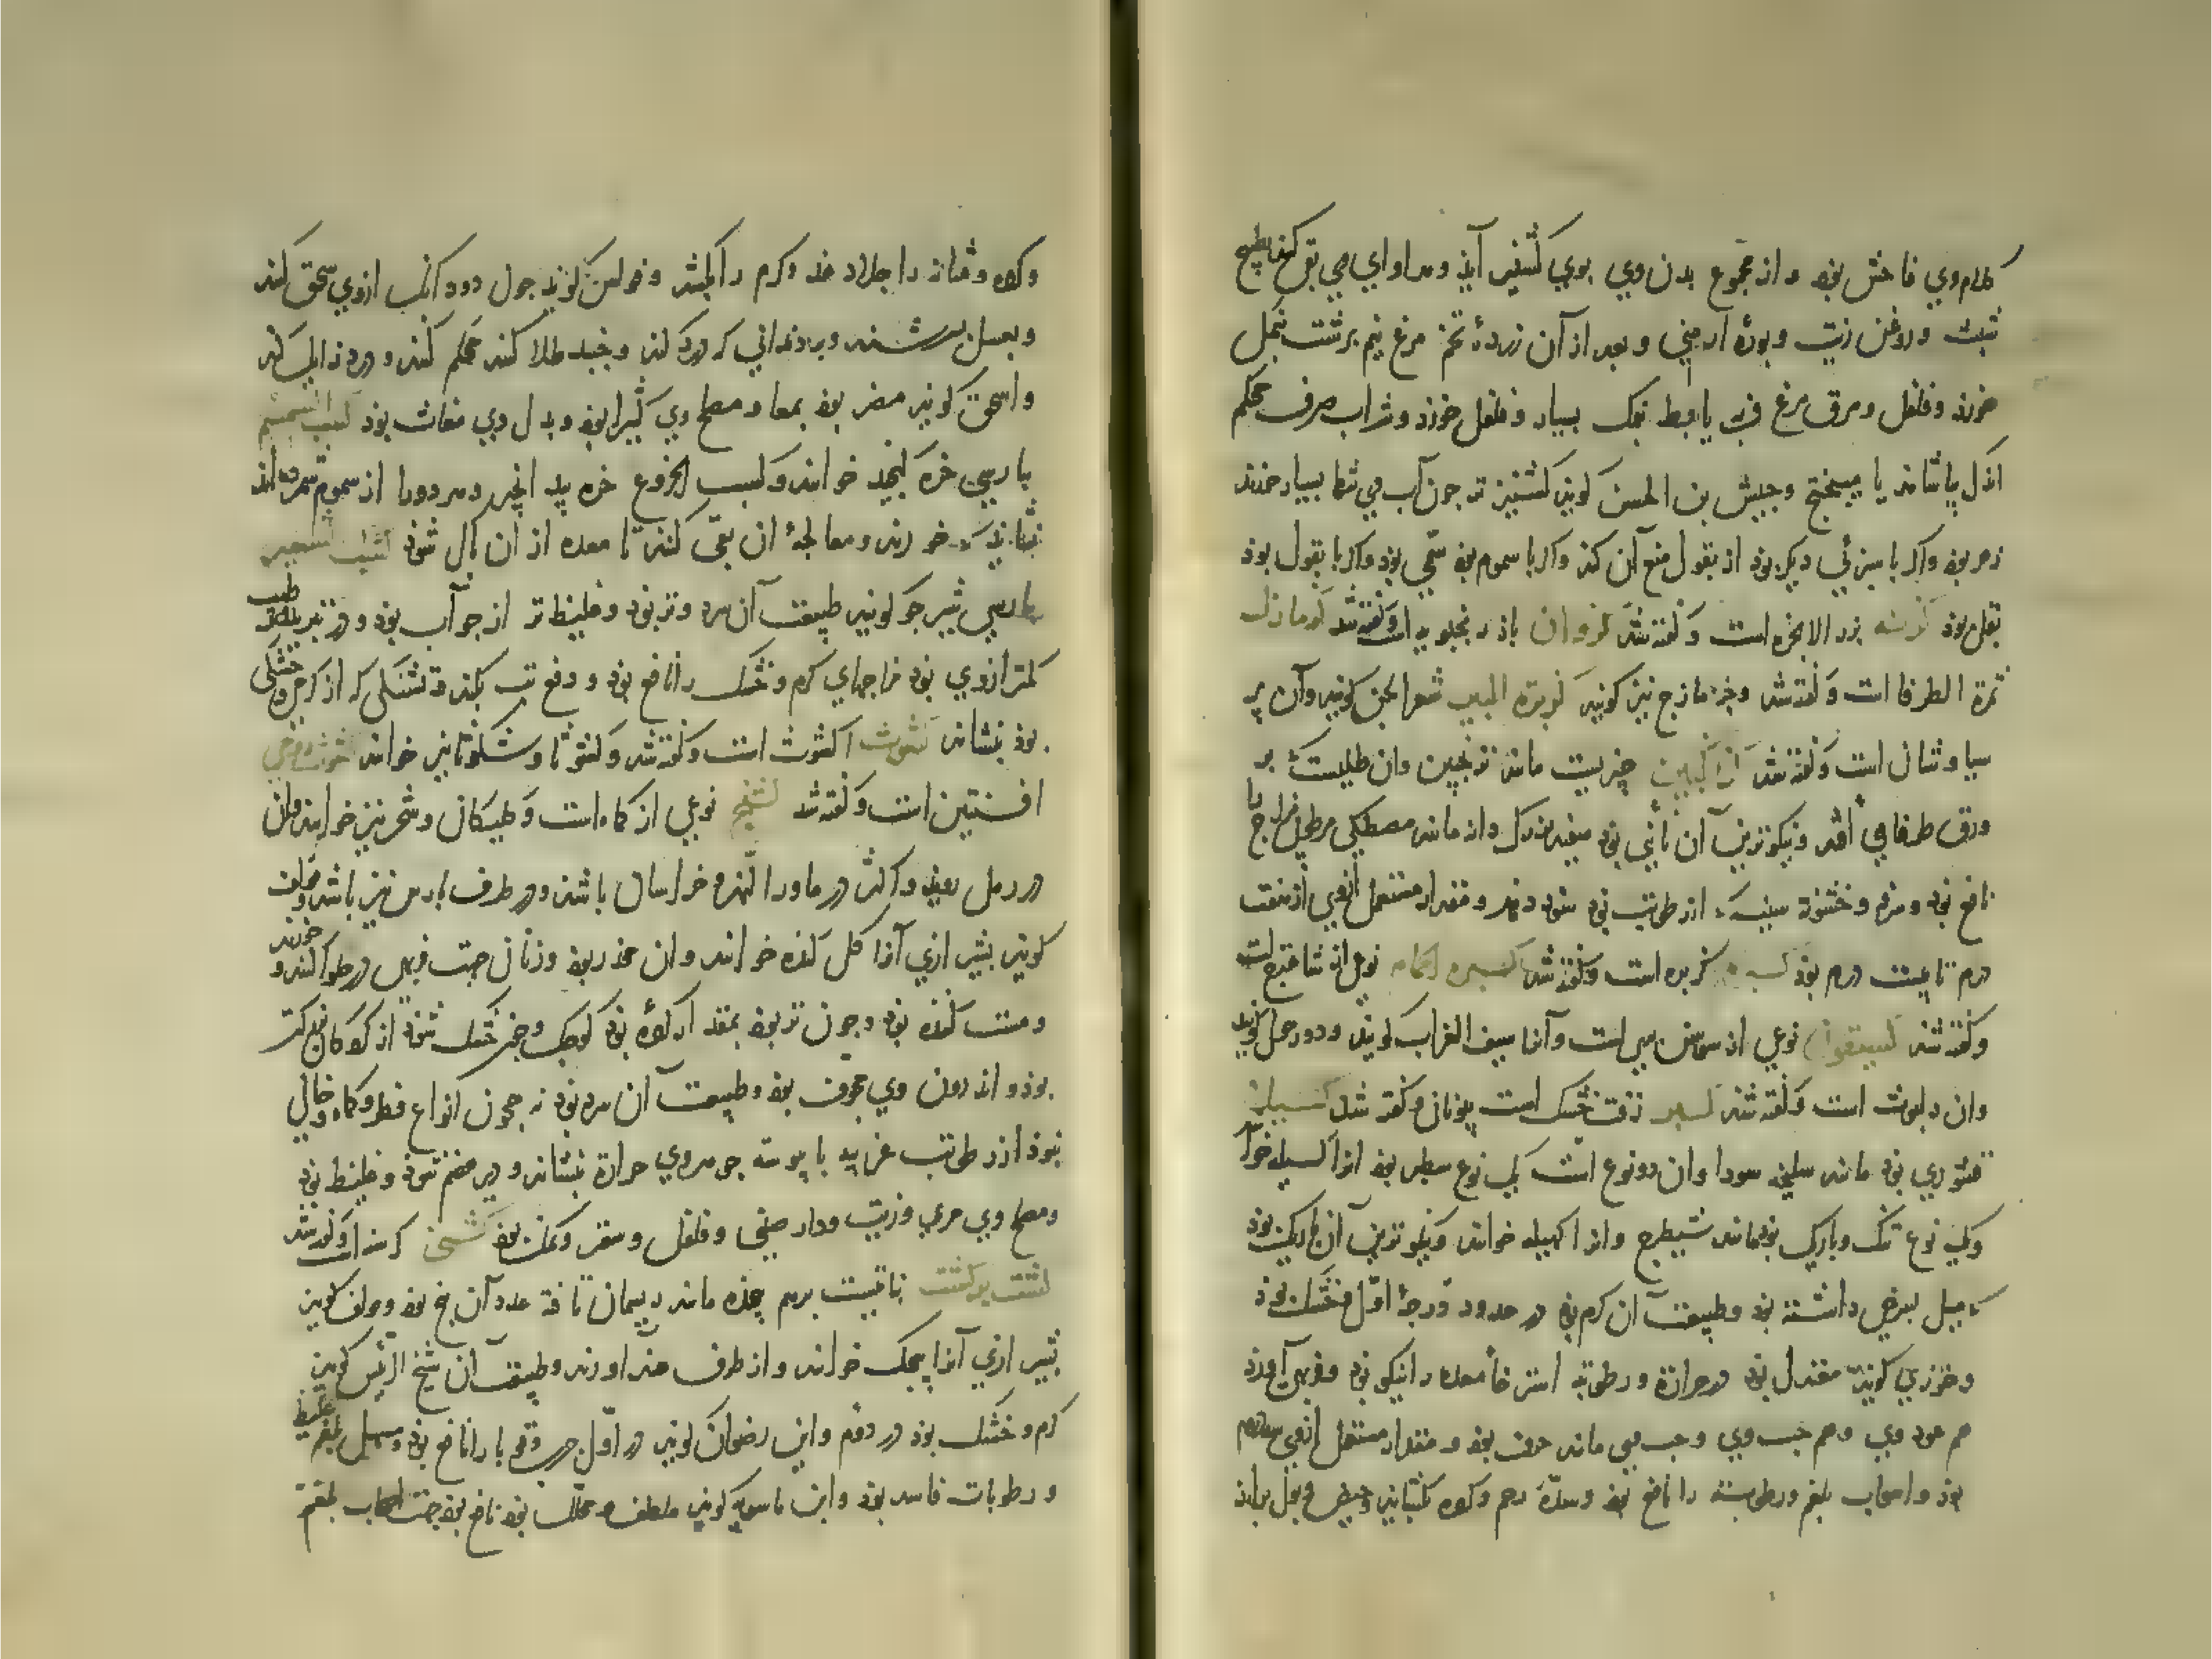 کلام وی فاحش بود و از مجموع بدن وی بوی کشنیز آید و مداوای وی بقی کنند بطبیخ
شبث و روغن زیت و بوره ارمنی و بعد از آن زرده تخم مرغ نیم برشت بنمک
خورند و فلفل و مرق مرغ فربه یا بط نمک بسیار و فلفل خورند و شراب صرف محکم
اندک بیاشامند یا میبختج و حبیش بن الحسن گوید کشنیز تر چون آب وی تنها بسیار خورند
زهر بود و اگر با سبزی دیگر بود از بقول منع آن کند و اگر با سموم بود سمی بود و اگر با بقول بود
بقلی بود کزنه بزر الانجره است و گفته شد کزوان بادرنجبویه است و گفته شد کزمازک
ثمرة الطرفا است و گفته شد و جزمازج نیز گویند کزبرة البیر شعر الجن گویند و آن پر
سیاوشان است و گفته شد کزانگبین چیزیست مانند ترنجبین و آن طلیست که بر
ورق طرفا می افتد و نیکوترین آن
نافع بود و سرفه و خشونت سینه که از رطوبت بود سود دهد و مقدار مستعمل از وی از هفت
درم تا بیست درم بود کسبره کزبره است و گفته شد کسبره الحمام نوعی از شاهترج است
و گفته شد نوعی از سوسن بری است و آنرا سیف الغراب گویند و دورحولی گویند
و آن دلبوث است و گفته شد زفت خشک است بیونانی و گفته شد کسیلا
قشوری بود مانند سلیخه سودا و آن دو نوع است یک نوع سطبر بود آنرا کسیله خوانند
و یک نوع تنک و باریک بود مانند شیطرج و آنرا کهیله خوانند و نیکوترین آن باریک بود
که میل بسرخی داشته بود و طبیعت آن گرم بود در حدود درجه اول و خشک بود
و خوزی گوید معتدل بود در حرارة و رطوبة استرخاء معده را نیکو بود و فربهی آورد
هم عود وی و هم حب وی و حب وی مانند حرف بود و مقدار مستعمل از وی سه درم
بود و اصحاب بلغم و رطوبت را نافع بود و سده رحم و گرده بگشاید و حیض و بول براند
و گرده و مثانه را جلا دهد و کرم را بکشد و فولس گوید چون دود انک از وی سحق کنند
و بعسل بسرشند و بر دندانی که درد کند و جنبد طلا کنند محکم کند و درد زایل کند
و اسحق گوید مضر بود بمعا و مصلح وی کثیرا بود و بدل وی مغاث بود کسب السمسم
بپارسی خره کنجد خوانند و کسب الخروع خره بید انجیر و هر دو را از سموم شمرده اند
نشاید که خورند و معالجه آن بقی کنند تا معده از آن پاک شود کشک الشعیر
بپارسی شیر جو گویند طبیعت آن سرد و تر بود و غلیظ تر از جو آب بود و در تبرید و ترطیب
کمتر از وی بود مزاجهای گرم و خشک را نافع بود و دفع تب بکند و تشنگی که از گرمی و خشکی
بود بنشاند کشوث اکشوث است و گفته شد و کشوثا و شکوثا نیز خوانند کشوث رومی
افسنتین است و گفته شد کشنج نوعی از کماه است و طیکان و شحر نیز خوانند و آن
در رمل روید و اکثر در ماوراالنهر و خراسان باشد و در طرف پارس نیز باشد و مولف
گوید بشیرازی آنرا کل کنده خوانند و آن مخدر بود و زنان جهت فربهی در حلوا کنند و خورند
و مست کننده بود و چون تر بود بمقدار گرده بود کوچک و چون خشک شود از گردکان بزرگتر
بود و اندرون وی مجوف بود و طبیعت آن سرد بود نه همچون انواع فطر و کماه و خالی
نبود از رطوبت غریبه با یوسته جوهر وی حرارة بنشاند و دیر هضم شود و غلیظ بود
و مصلح وی مری و زیت و دار صینی و فلفل و سعتر و نمک بود کشنی کرسنه است و گفته شد
کشت بر کشت نباتیست برهم پیچیده مانند ریسمان تافته عدد آن پنج بود و مولف گوید
بشیرازی آنرا پیچک خوانند و از طرف هند آورند و طبیعت آن شیخ الرئیس گوید
گرم و خشک بود در دوم و ابن رضوان گوید در اول جرب و قوبا را نافع بود و مسهل بلغم غلیظ
و رطوبات فاسد بود و ابن ماسویه گوید ملطف و محلل بود نافع بود جهت اصحاب بلغم